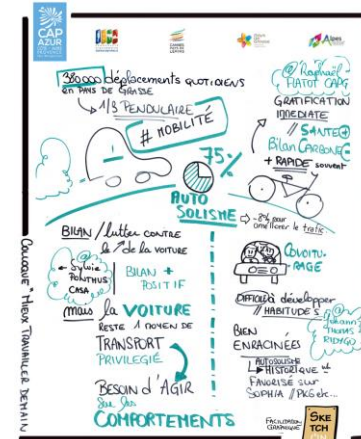 CAP
AZUR
380000 déplacements QUOTIDIENS
EN PAYS DE GRASSE
↳ 1/3 PENDULAIRE
# MOBILITÉ
75%
AUTO
SOLISME
→ -8% pour
améliorer le trafic
@ Raphaël
PIATOT CAPG
GRATIFICATION
IMMEDIATE
// SANTE +
Bilan CARBONE -
+ RAPIDE souvent
BILAN / lutter CONTRE
le ↗ de la VOITURE
← Sylvie
PONTHUS
CASA
BILAN +
POSITIF
mais la VOITURE
RESTE 1 MOYEN DE
TRANSPORT
PRIVILEGIÉ
BESOIN d'AGIR
Sur les
COMPORTEMENTS
COVOITU-
RAGE
DIFFICILE à développer
// HABITUDES
BIEN
ENRACINÉES
THOMAS
AUTOSOLISME
↳ HISTORIQUE
FAVORISÉ sur
SOPHIA / PKG etc...
COLLOQUE "MIEUX TRAVAILLER DEMAIN
FACILITATION
GRAPHIQUE
SKE
TCH